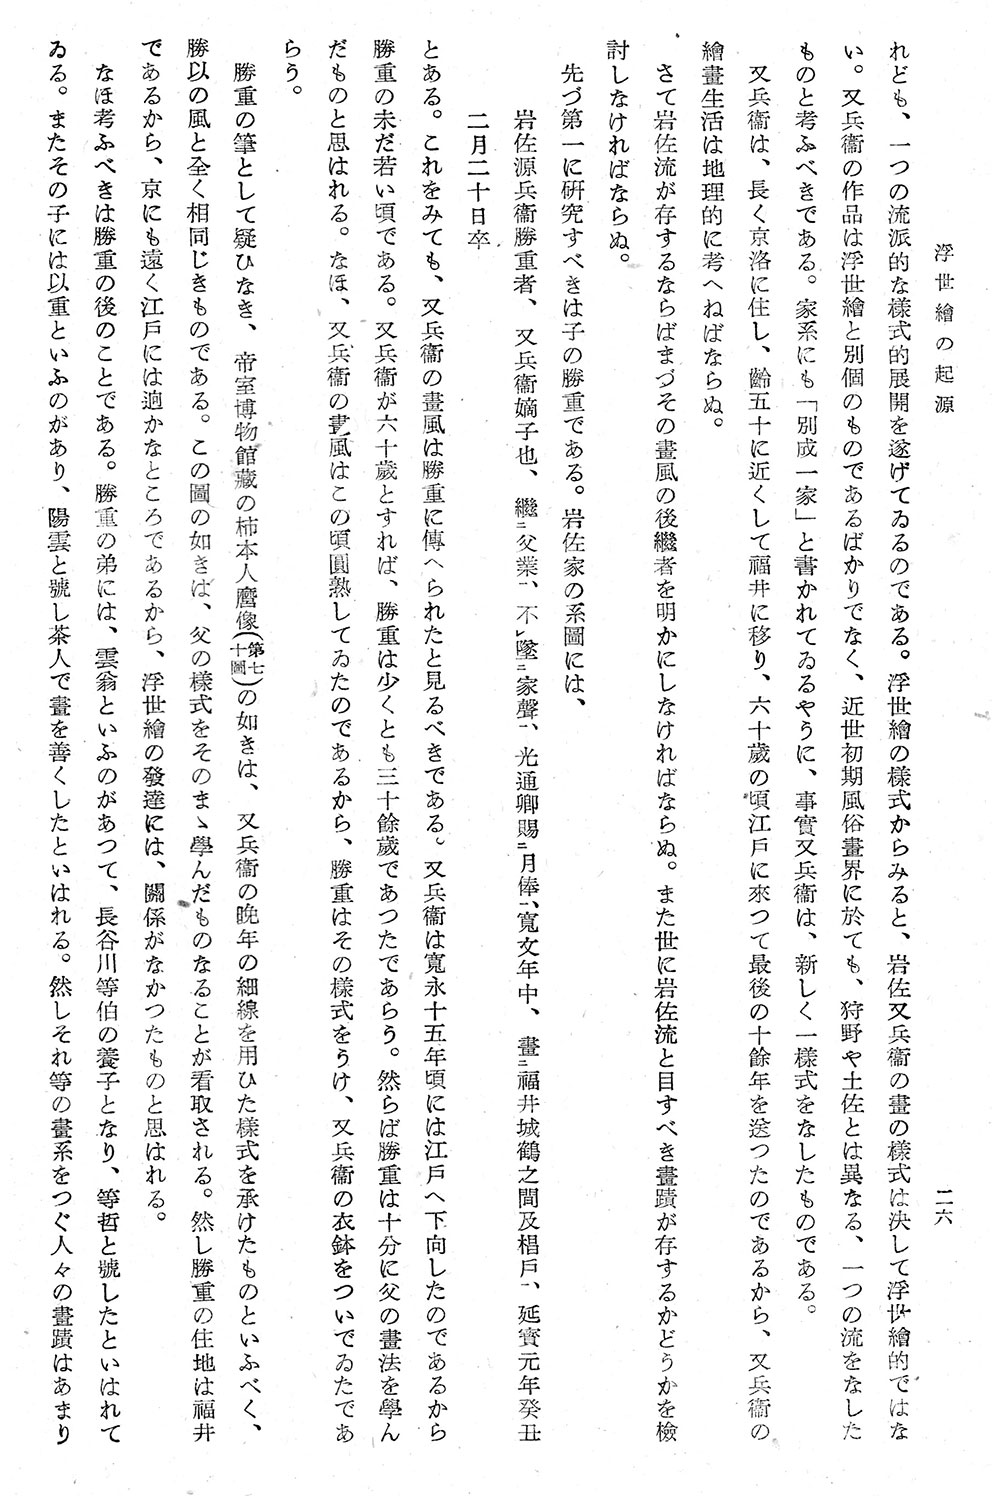 浮世繪の起源
二六
れども、一つの流派的な樣式的展開を遂げてゐるのである。浮世繪の樣式からみると、岩佐又兵衞の畫の樣式は決して浮世繪的ではな
い。又兵衞の作品は浮世繪と別個のものであるばかりでなく、近世初期風俗畫界に於ても、狩野や土佐とは異なる、一つの流をなした
ものと考ふべきである。家系にも「別成一家」と書かれてゐるやうに、事實又兵衞は、新しく一樣式をなしたものである。
又兵衞は、長く京洛に住し、齡五十に近くして福井に移り、六十歲の頃江戶に來つて最後の十餘年を送つたのであるから、又兵衞の
繪畫生活は地理的に考へねばならぬ。
さて岩佐流が存するならばまづその畫風の後繼者を明かにしなければならぬ。また世に岩佐流と目すべき畫蹟が存するかどうかを檢
討しなければならぬ。
先づ第一に硏究すべきは子の勝重である。岩佐家の系圖には、
岩佐源兵衞勝重者、又兵衞嫡子也、繼二父業一、不レ墜二家聲一、光通卿賜二月俸一、寬文年中、畫二福井城鶴之間及椙戶一、延寶元年癸丑
二月二十日卒
とある。これをみても、又兵衞の畫風は勝重に傳へられたと見るべきである。又兵衞は寬永十五年頃には江戶へ下向したのであるから
勝重の未だ若い頃である。又兵衞が六十歲とすれば、勝重は少くとも三十餘歲であつたであらう。然らば勝重は十分に父の畫法を學ん
だものと思はれる。なほ、又兵衞の畫風はこの頃圓熟してゐたのであるから、勝重はその樣式をうけ、又兵衞の衣鉢をついでゐたであ
らう。
勝重の筆として疑ひなき、帝室博物館藏の柿本人麿像(第七十圖)の如きは、又兵衞の晚年の細線を用ひた樣式を承けたものといふべく、
勝以の風と全く相同じきものである。この圖の如きは、父の樣式をそのまゝ學んだものなることが看取される。然し勝重の住地は福井
であるから、京にも遠く江戶には逈かなところであるから、浮世繪の發達には、關係がなかつたものと思はれる。
なほ考ふべきは勝重の後のことである。勝重の弟には、雲翁といふのがあつて、長谷川等伯の養子となり、等哲と號したといはれて
ゐる。またその子には以重といふのがあり、陽雲と號し茶人で畫を善くしたといはれる。然しそれ等の畫系をつぐ人々の畫蹟はあまり